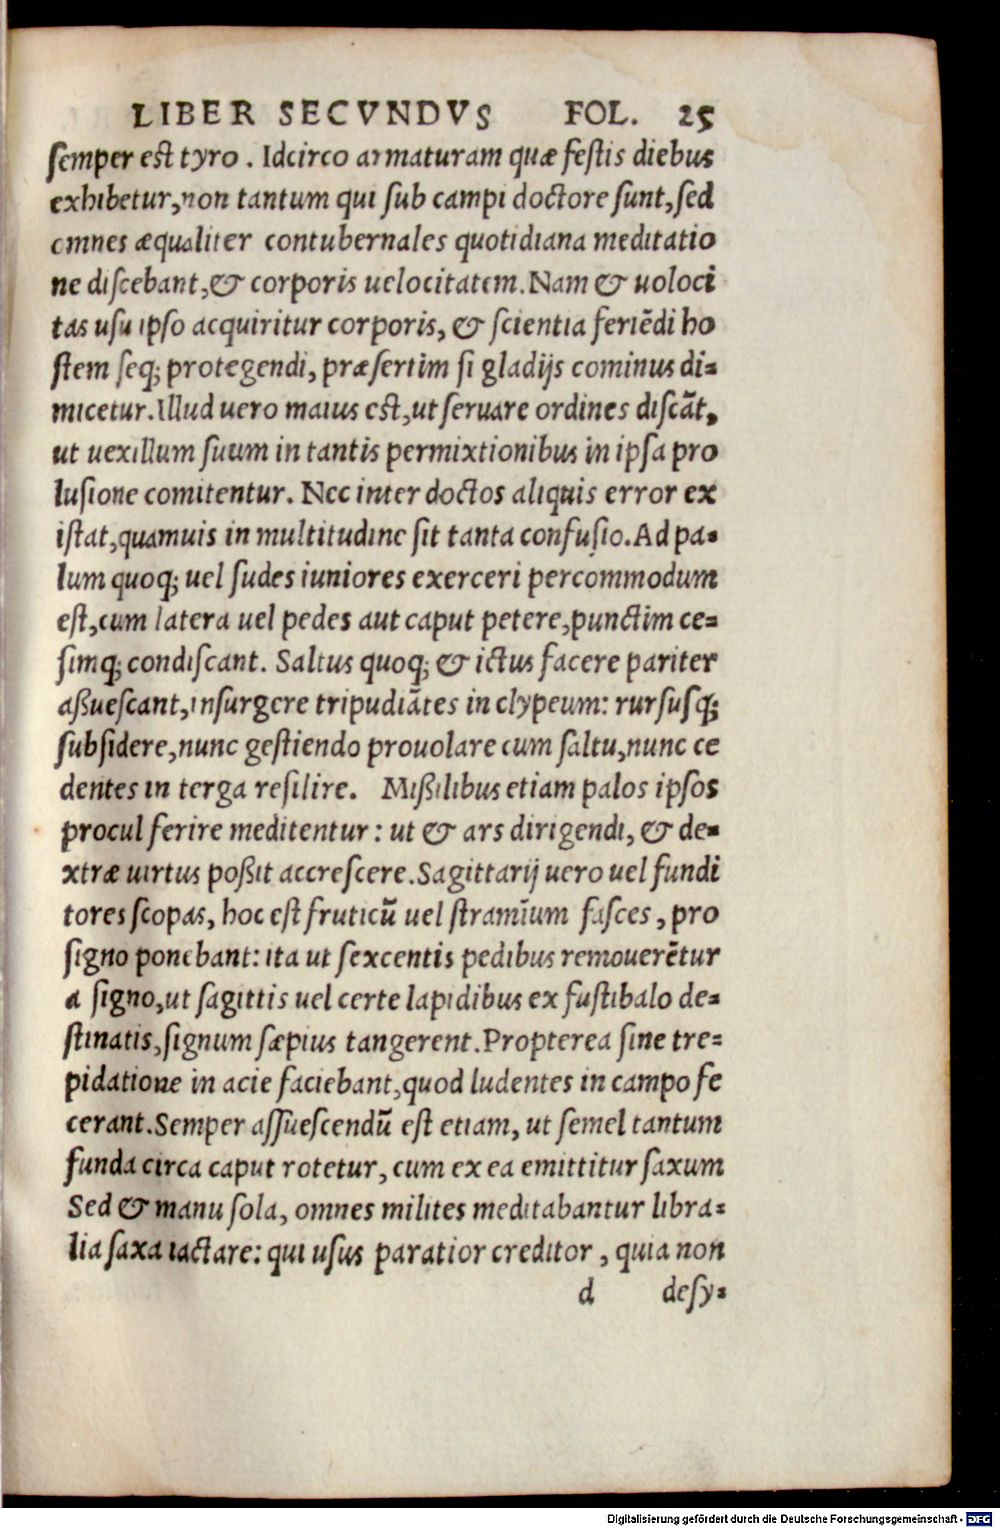 LIBER SECVNDVS FOL. 25
ſemper eſt tyro. Idcirco armaturam quæ feſtis diebus
exhibetur, non tantum qui ſub campi doctore ſunt, ſed
omnes æqualiter contubernales quotidiana meditatio
ne diſcebant, & corporis uelocitatem. Nam & uoloci
tas uſu ipſo acquiritur corporis, & ſcientia feriēdi ho
ſtem ſeq; protegendi, præſertim ſi gladijs cominus di=
micetur. Illud uero maius eſt, ut ſeruare ordines diſcāt,
ut uexillum ſuum in tantis permixtionibus in ipſa pro
luſione comitentur. Nec inter doctos aliquis error ex
iſtat, quamuis in multitudine ſit tanta confuſio. Ad pa=
lum quoq; uel ſudes iuniores exerceri percommodum
eſt, cum latera uel pedes aut caput petere, punctim ce=
ſimq; condiſcant. Saltus quoq; & ictus facere pariter
aßueſcant, inſurgere tripudiātes in clypeum: rurſusq;
ſubſidere, nunc geſtiendo prouolare cum ſaltu, nunc ce
dentes in terga reſilire. Mißilibus etiam palos ipſos
procul ferire meditentur: ut & ars dirigendi, & de=
xtræ uirtus poßit accreſcere. Sagittarij uero uel fundi
tores ſcopas, hoc eſt fruticū uel ſtramīum faſces, pro
ſigno ponebant: ita ut ſexcentis pedibus remouerētur
a ſigno, ut ſagittis uel certe lapidibus ex fuſtibalo de=
ſtinatis, ſignum ſæpius tangerent. Propterea ſine tre=
pidatione in acie faciebant, quod ludentes in campo fe
cerant. Semper aſſueſcendū eſt etiam, ut ſemel tantum
funda circa caput rotetur, cum ex ea emittitur ſaxum
Sed & manu ſola, omnes milites meditabantur libra=
lia ſaxa iactare: qui uſus paratior creditor, quia non
d deſy=
Digitalisierung gefördert durch die Deutsche Forschungsgemeinschaft - DFG